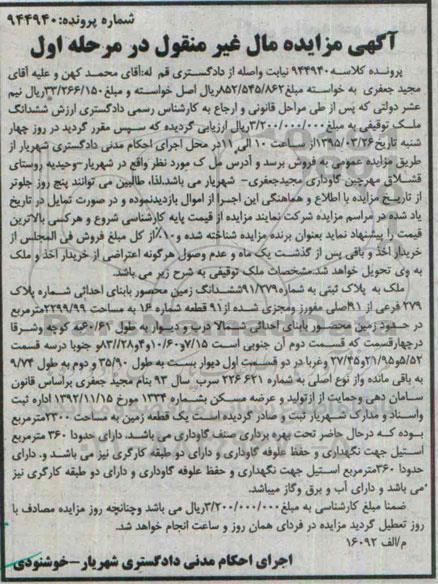 شماره پرونده:۹۴۴۹۴۰
آگهی مزایده مال غیر منقول در مرحله اول
پرونده کلاسه ۹۴۴۹۴۰ نیابت واصله از دادگستری قم له:آقای محمد کهن و علیه آقای
مجید جعفری به خواسته مبلغ۸۵۲/۵۴۵/۸۶۲ریال اصل خواسته و مبلغ۳۳/۲۶۶/۱۵۰ریال نیم
عشر دولتی که پس از طی مراحل قانونی و ارجاع به کارشناس رسمی دادگستری ارزش ششدانگ
ملک توقیفی به مبلغ۳/۲۰۰/۰۰۰/۰۰۰ریال ارزیابی گردیده که سپس مقرر گردید در روز چهار
شنبه تاریخ۱۳۹۵/۰۳/۲۶از ساعت ۱۰ الی ۱۱در محل اجرای احکام مدنی دادگستری شهریار از
طریق مزایده عمومی به فروش برسد و آدرس مل ک مورد نظر واقع در شهریار-وحیدیه روستای
قشلاق مهرچین گاوداری مجیدجعفری- شهریار می باشد.لذا، طالبین می توانند پنج روز جلوتر
از تاریخ مزایده با اطلاع و هماهنگی این اجرا از اموال بازدیدنموده و در صورت تمایل در تاریخ
یاد شده در مراسم مزایده شرکت نمایند مزایده از قیمت پایه کارشناسی شروع و هرکسی بالاترین
قیمت را پیشنهاد نماید بعنوان برنده مزایده شناخته شده و۱۰٪از کل مبلغ فروش فی المجلس از
خریدار اخذ و باقی پس از گذشت یک ماه و عدم وصول هرگونه اعتراضی از خریدار اخذ و ملک
به وی تحویل خواهد شد.مشخصات ملک توقیفی به شرح زیر می باشد.
ملک به پلاک ثبتی به شماره۹۱/۲۷۹ششدانگ زمین محصور بابنای احداثی شماره پلاک
۲۷۹ فرعی از ۹۱اصلی مفروز ومجزی شده از۹۱ قطعه شماره ۱۶ به مساحت ۲۲۹۹/۹۹مترمربع
در حدود زمین محصور بابنای احداثی شمالا درب و دیوار به طول ۶۱/۰به کوچه وشرقا
درچهارقسمت که قسمت دوم آن جنوبی است ۷/۱۵و۱۰/۶۰و۴و۸۳/۲۸و جنوبا درسه قسمت
۵/۵۲و۲۱/۹۵و۲۷/۴۵ وغربا در دو قسمت اول دیوار یست به طول ۳۵/۹۰ و دوم به طول ۹/۷۴
به باقی مانده واز نوع اصلی به شماره ۲۲۶۶۲۱ سرب سال ۹۳ بنام مجید جعفری براساس قانون
سامان دهی وحمایت از ازتولید و عرضه مسکن بشماره ۱۳۳۴ مورخ ۱۳۹۲/۱۱/۱۵ اداره ثبت
واسناد و مدارک شهریار ثبت و صادر گردیده است یک قطعه زمین به مساحت ۲۳۰۰مترمربع
بوده که درحال حاضر تحت بهره برداری صنف گاوداری می باشد، دارای حدودا ۳۶۰ مترمربع
استیل جهت نگهداری و حفظ علوفه گاوداری و دارای دو طبقه کارگری نیز می باشد و. دارای
حدودا ۳۶۰مترمربع استیل جهت نگهداری و حفظ علوفه گاوداری و دارای دو طبقه کارگری نیز
می باشد و دارای آب و برق وگاز میباشد.
ضمنا مبلغ کارشناسی به مبلغ۳/۲۰۰/۰۰۰/۰۰۰ریال می باشد وچنانچه روز مزایده مصادف با
روز تعطیل گردید مزایده در فردای همان روز و ساعت انجام خواهد شد.
م/الف ۱۶۰۹۲
اجرای احکام مدنی دادگستری شهریار-خوشنودی